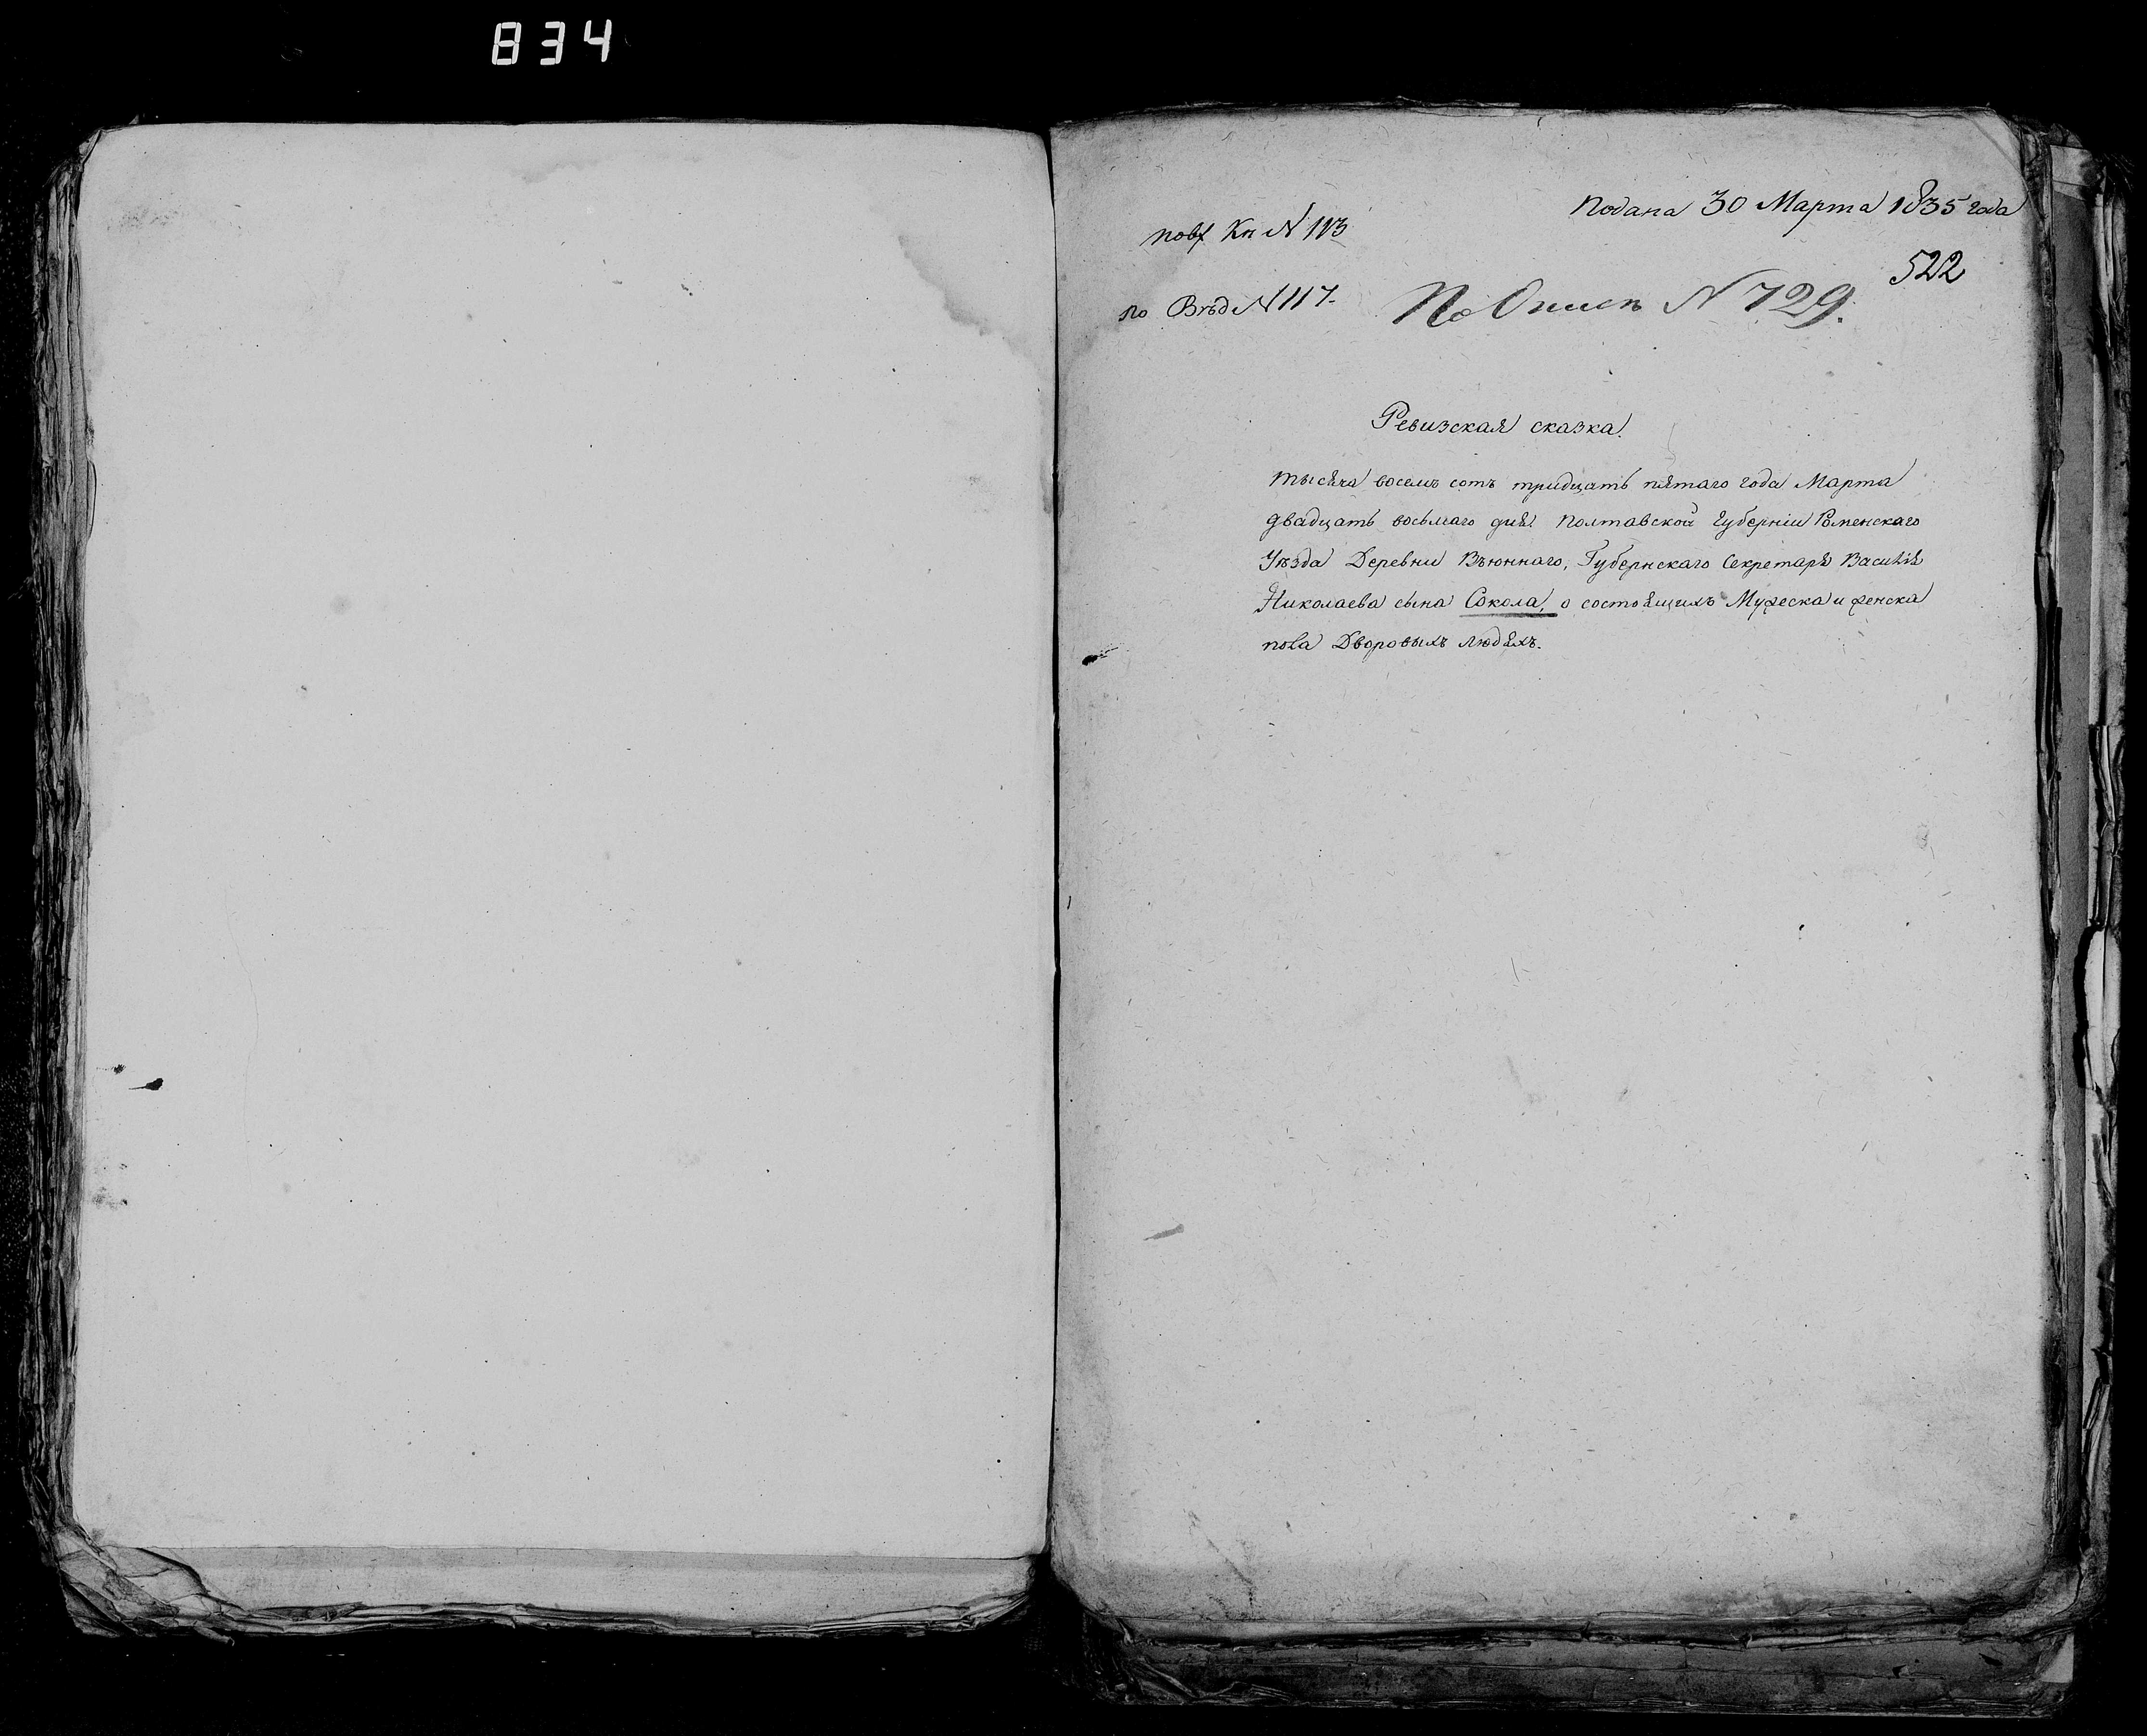 834
Подана 30 Марта 1835 года
Кн N 113
522
по Вѣд N 117.
По Описи N 729.
Ревизская сказка.
тысяча восемь сотъ тридцать пятаго года Марта
двадцать восьмаго дня Полтавской губерніи Роменскаго
Уѣзда Деревни Вьюннаго, Губернскаго Секретаря Василія
Николаева сына Сокола, о состоящихъ Мужеска и женска
пола Дворовыхъ людяхъ.